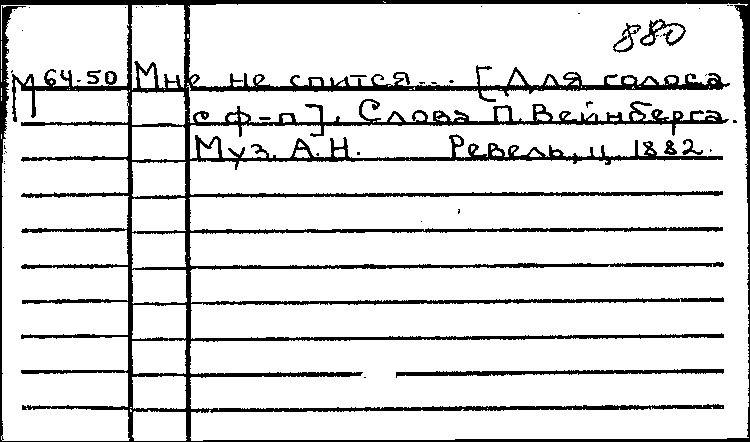 880
М 64-50 Мне не спится... [Для голоса
с ф-п]. Слова П. Вейнберга.
Муз. А. Н. Ревель, ц. 1882.